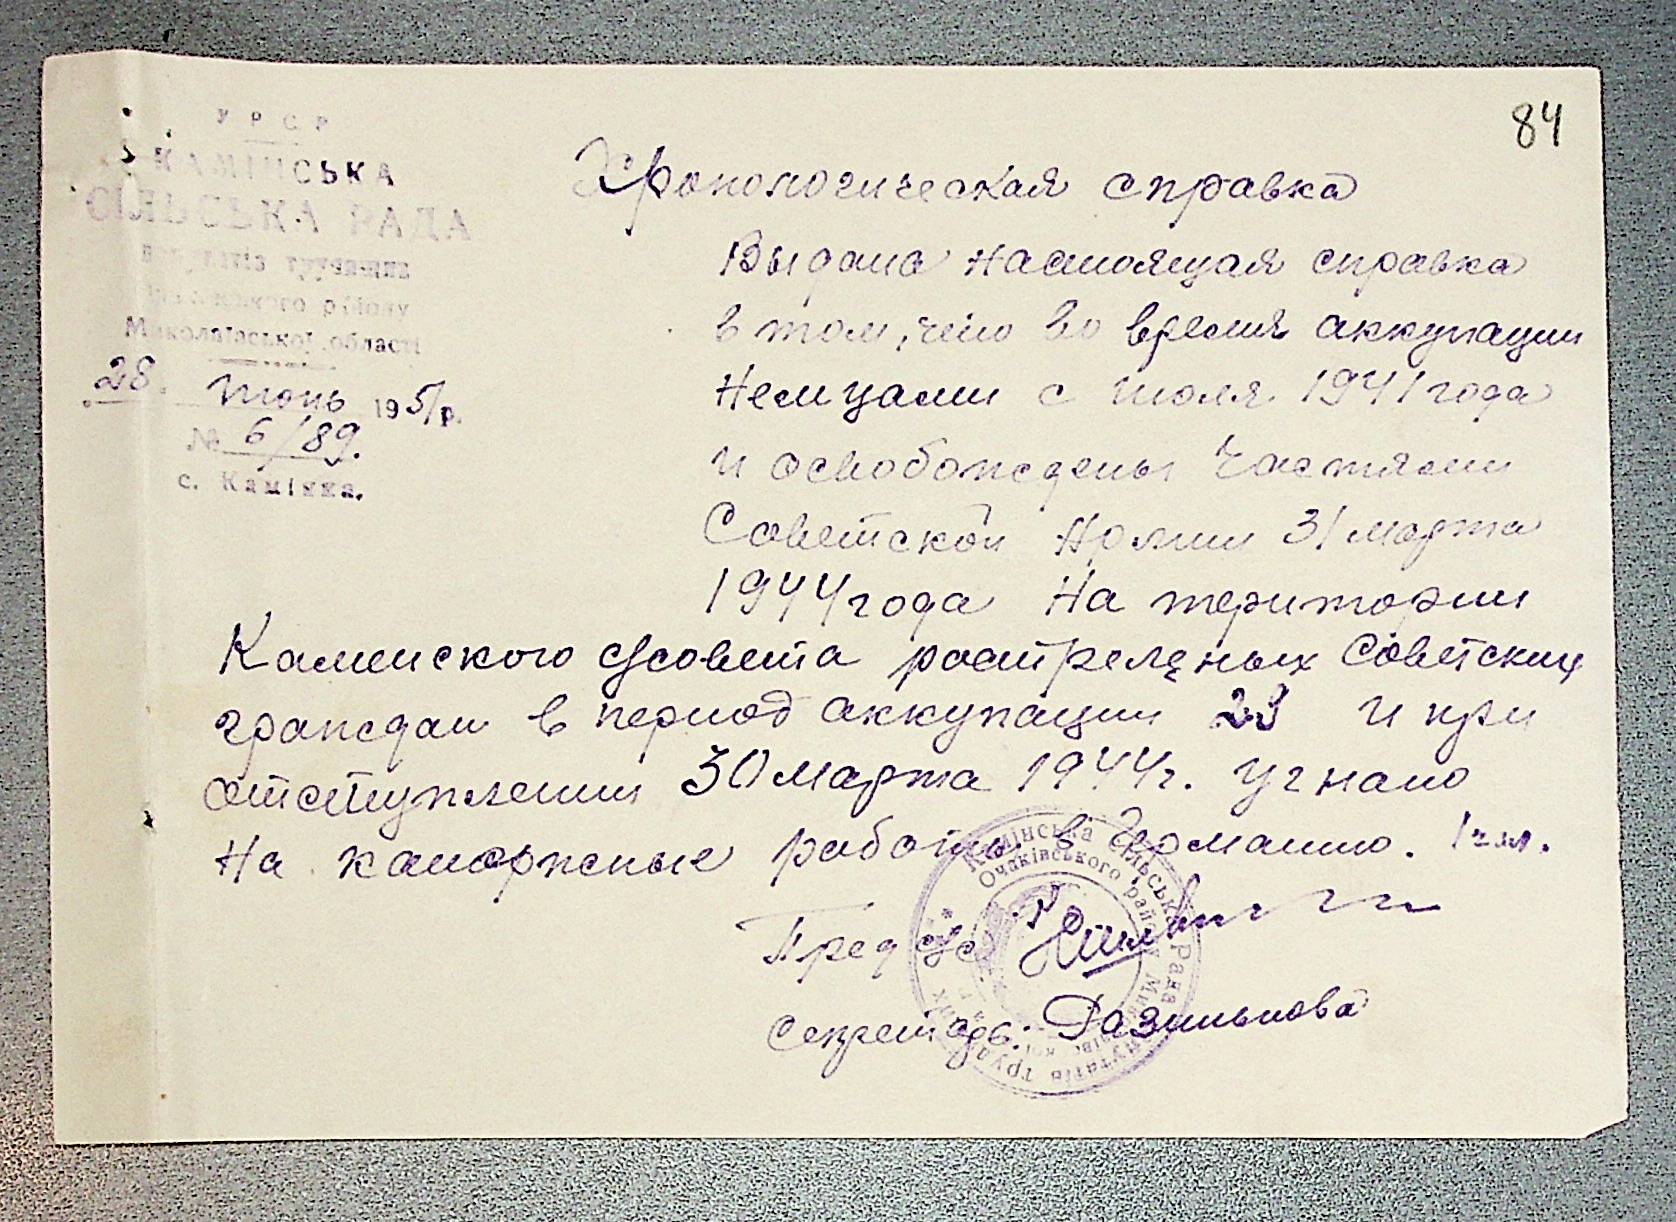 84
УРСР
КАМІНСЬКА
СІЛЬСЬКА РАДА
депутатів трудящих
Очаківського району
Миколаївської області
28 Июнь 1951 р.
№ 6/89.
с. Камінка.
Хронологическая справка
Выдана настоящая справка
в том, что во время аккупации
Немцами с июля 1941 года
и освобождены Частями
Советской Армии 31 марта
1944 года На територии
Каменского с/совета растреленых Советских
граждан в период аккупации 29 и при
отступлении 30 марта 1944 г. Угнано
На каторжные работы в Германию. 1 чел.
Пред с/с
Секретарь: Разинькова
Камінська Сільська Рада
Очаківського району